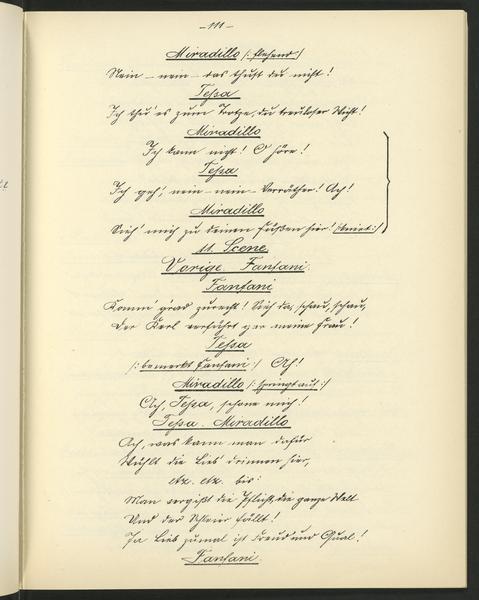 — 111 —
Miradillo /: flehend :/
Nein – nein – das thust du nicht!
Tessa
Ich thu' es zum Trotze, du treuloser Wicht!
Miradillo
Ich kann nicht! O höre!
Tessa
Ich geh', nein – nein – Verräther! Ach!
Miradillo
Sieh' mich zu deinen Füßen hier! /: kniet :/
11. Scene
Vorige. Fanfani.
Fanfani
Komm' g'rad zurecht! Sieh da, schau, schau,
Der Kerl verführt gar meine Frau!
Tessa
/: bemerkt Fanfani :/ Ah!
Miradillo /: springt auf :/
Ach, Tessa, schone mich!
Tessa. Miradillo
Ach, was kann man dafür
Wühlt die Lieb' drinnen hier,
etz. etz. bis:
Man vergißt die Pflicht, die ganze Welt
Und der Schleier fällt!
Ja Lieb' zumal ist Freud' und Qual!
Fanfani.